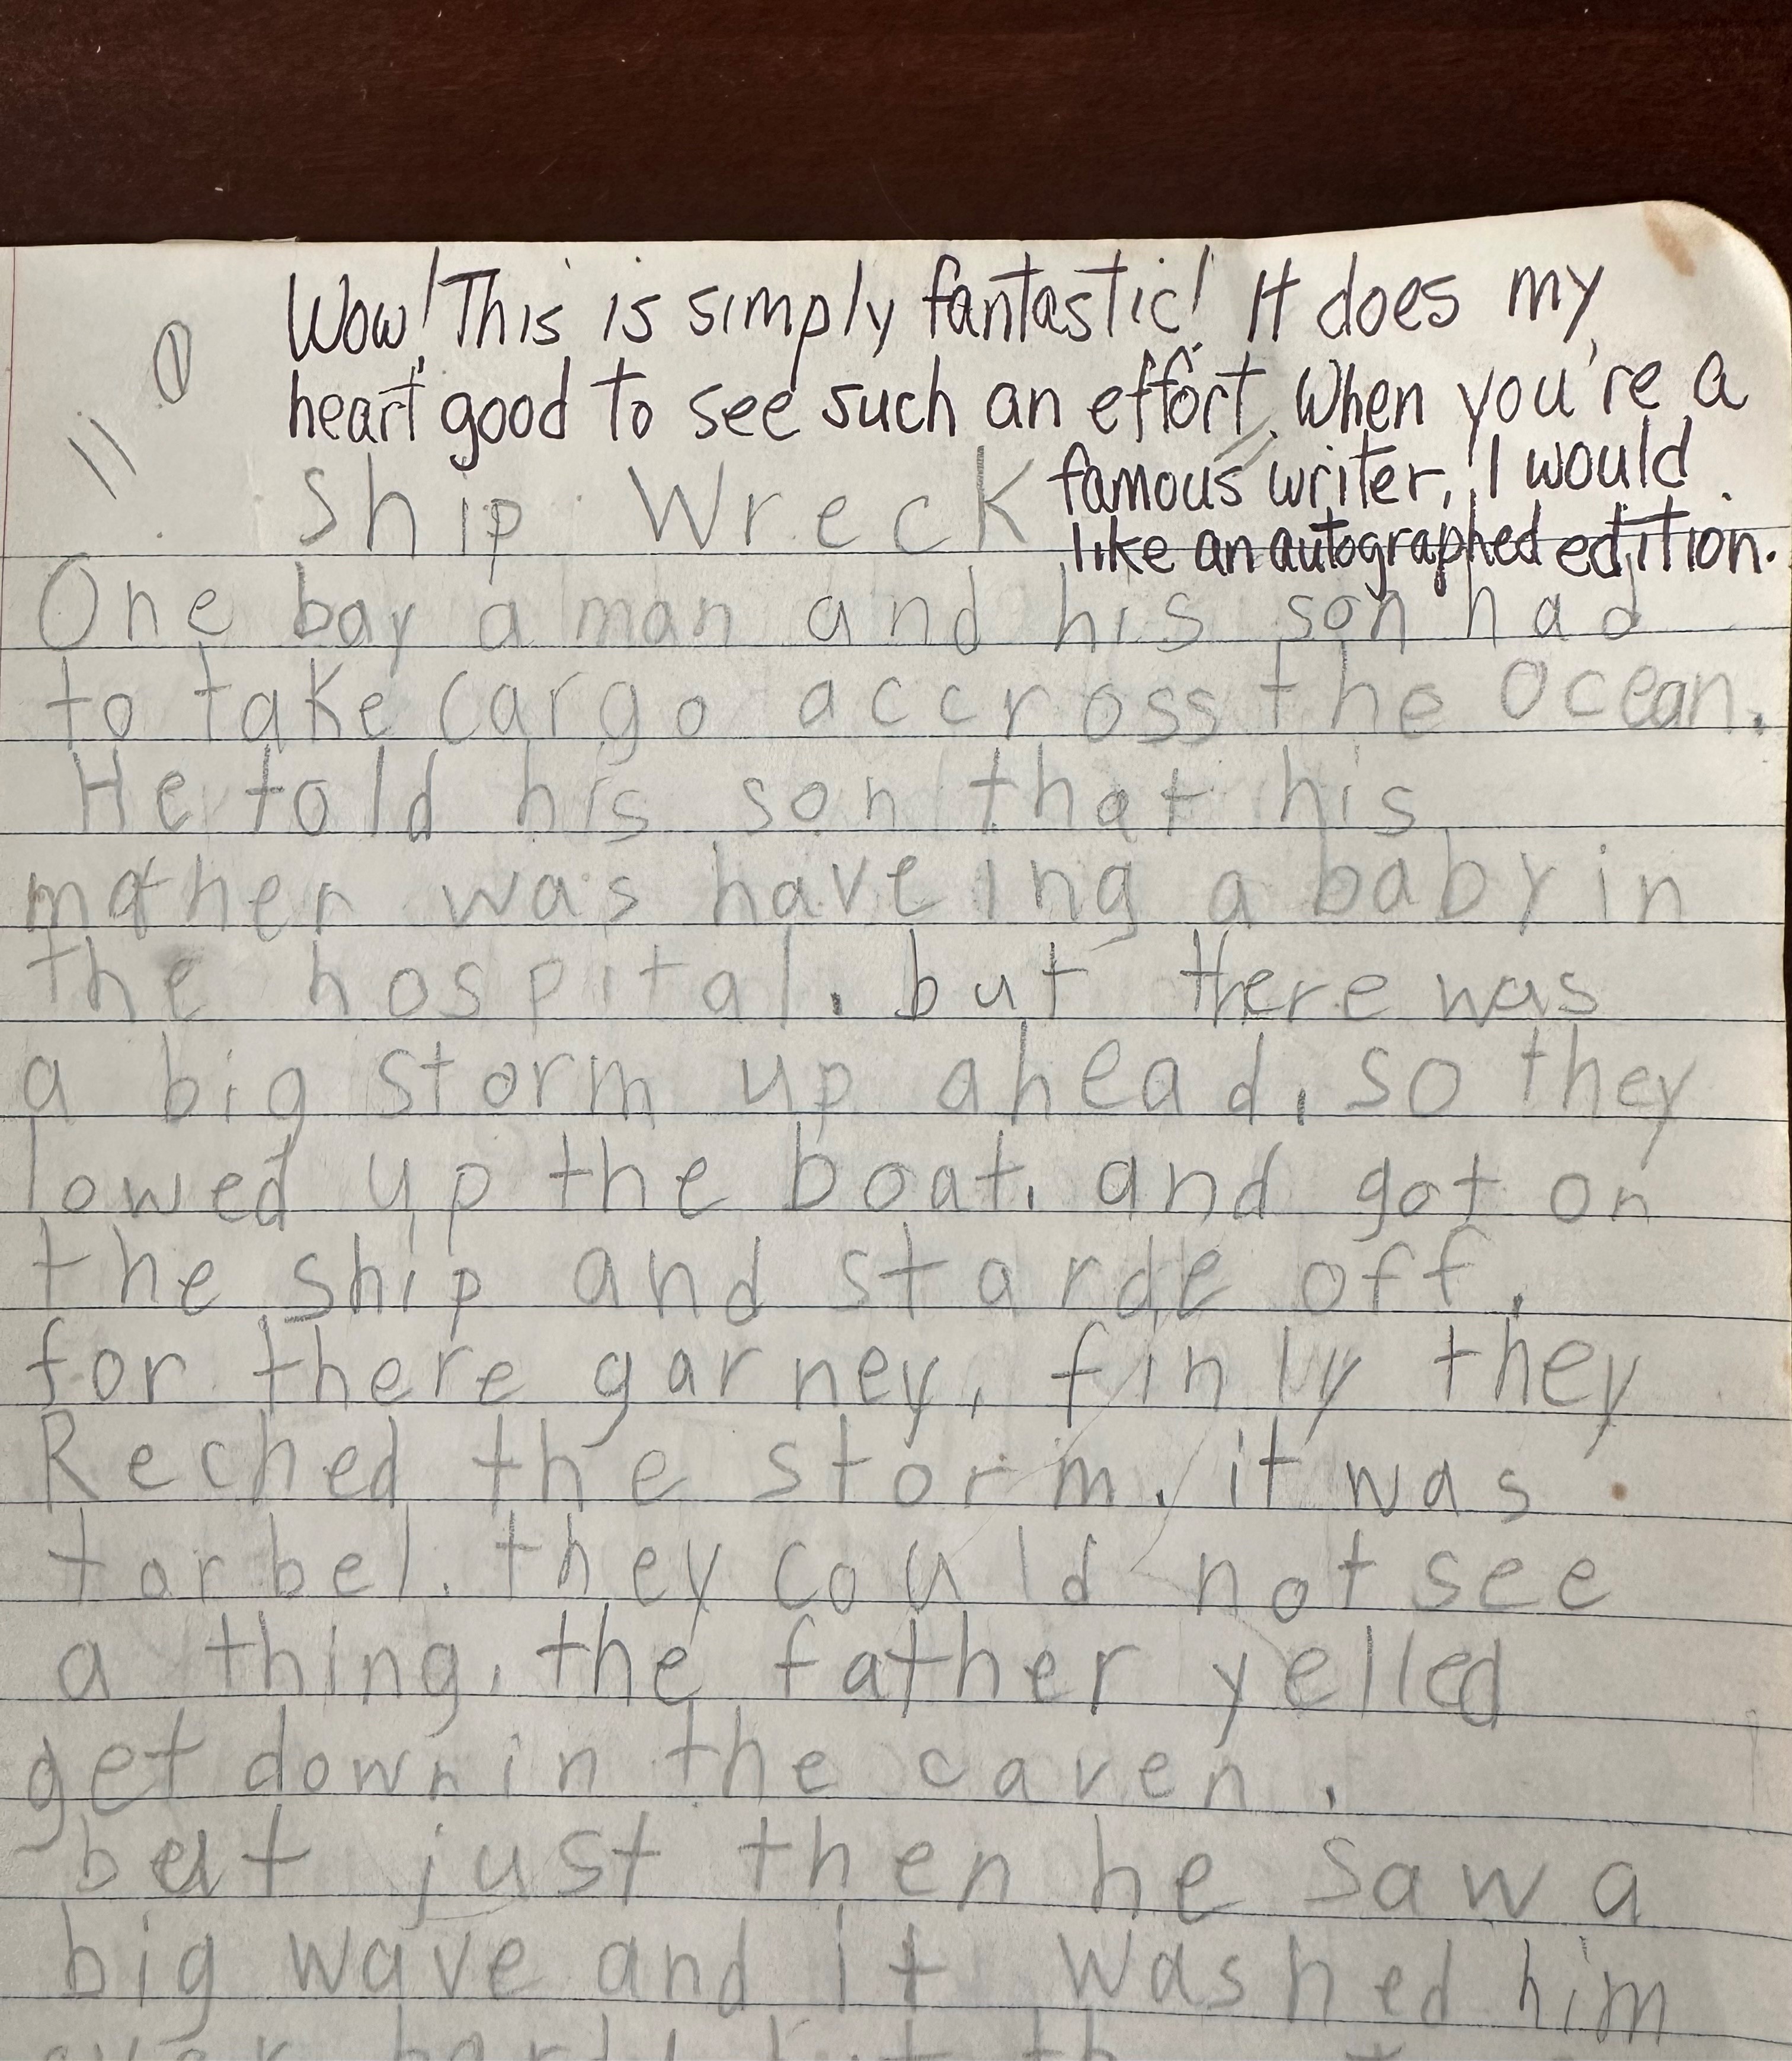 ①
Wow! This is simply fantastic! It does my
heart good to see such an effort. When you're a
famous writer, I would
like an autographed edition.
" Ship Wreck "
One bay a man and his son had
to take cargo accross the Ocean.
He told his son that his
mother was haveing a baby in
the hospital. but there was
a big storm up ahead. so they
lowed up the boat. and got on
the ship and starde off.
for there garney. finly they
Reched the storm. it was
torbel. they could not see
a thing. the father yelled
get down in the caven.
but just then he saw a
big wave and it washed him